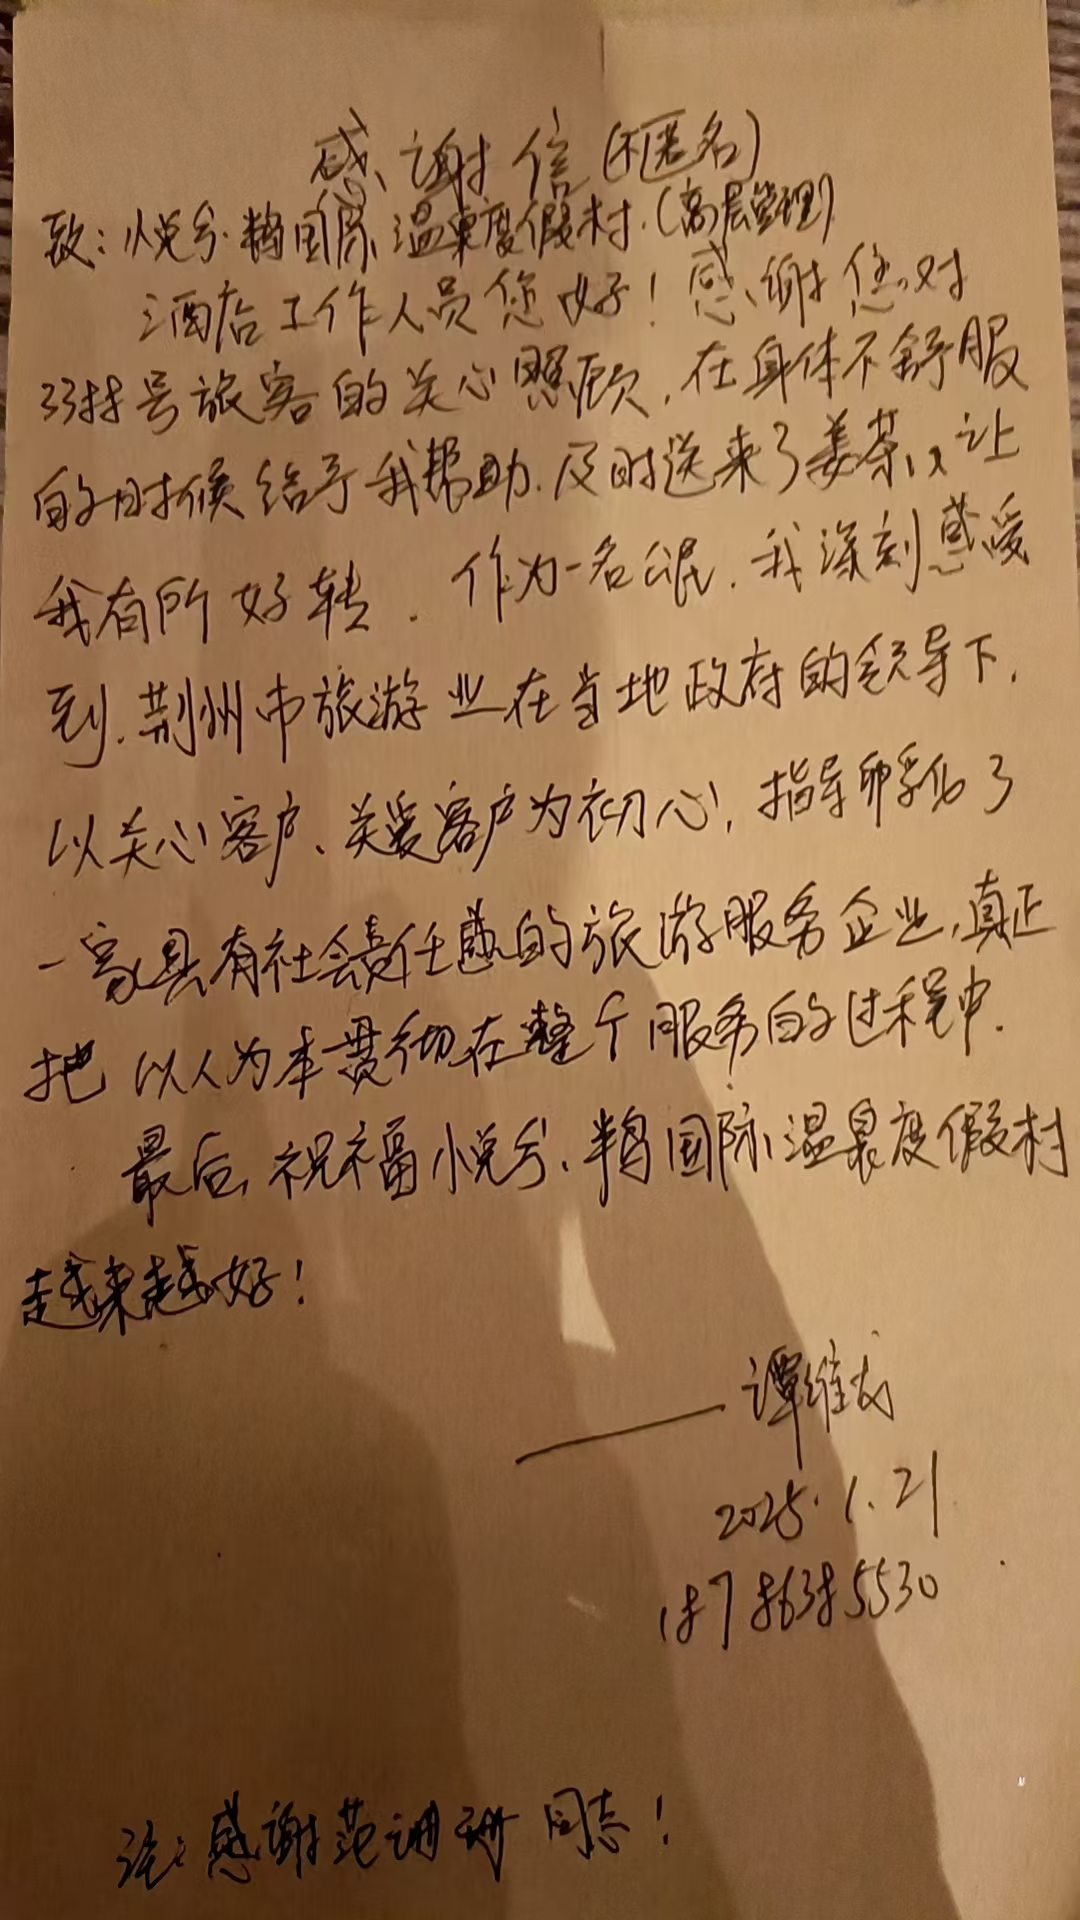 感谢信(不匿名)
致:悦兮·半岛国际温泉度假村.(高层管理)
酒店工作人员您好!感谢您对
3388号旅客的关心照顾,在身体不舒服
的时候给予我帮助.及时送来了姜茶,让
我有所好转.作为一名公民.我深刻感受
到.荆州市旅游业在当地政府的领导下.
以关心客户、关爱客户为初心!指导
一家具有社会责任感的旅游服务企业,真正
把以人为本贯彻在整个服务的过程中.
最后,祝福悦兮·半岛国际温泉度假村
越来越好!
——谭维
2025.1.21
18786385530
注:感谢范珊珊同志!